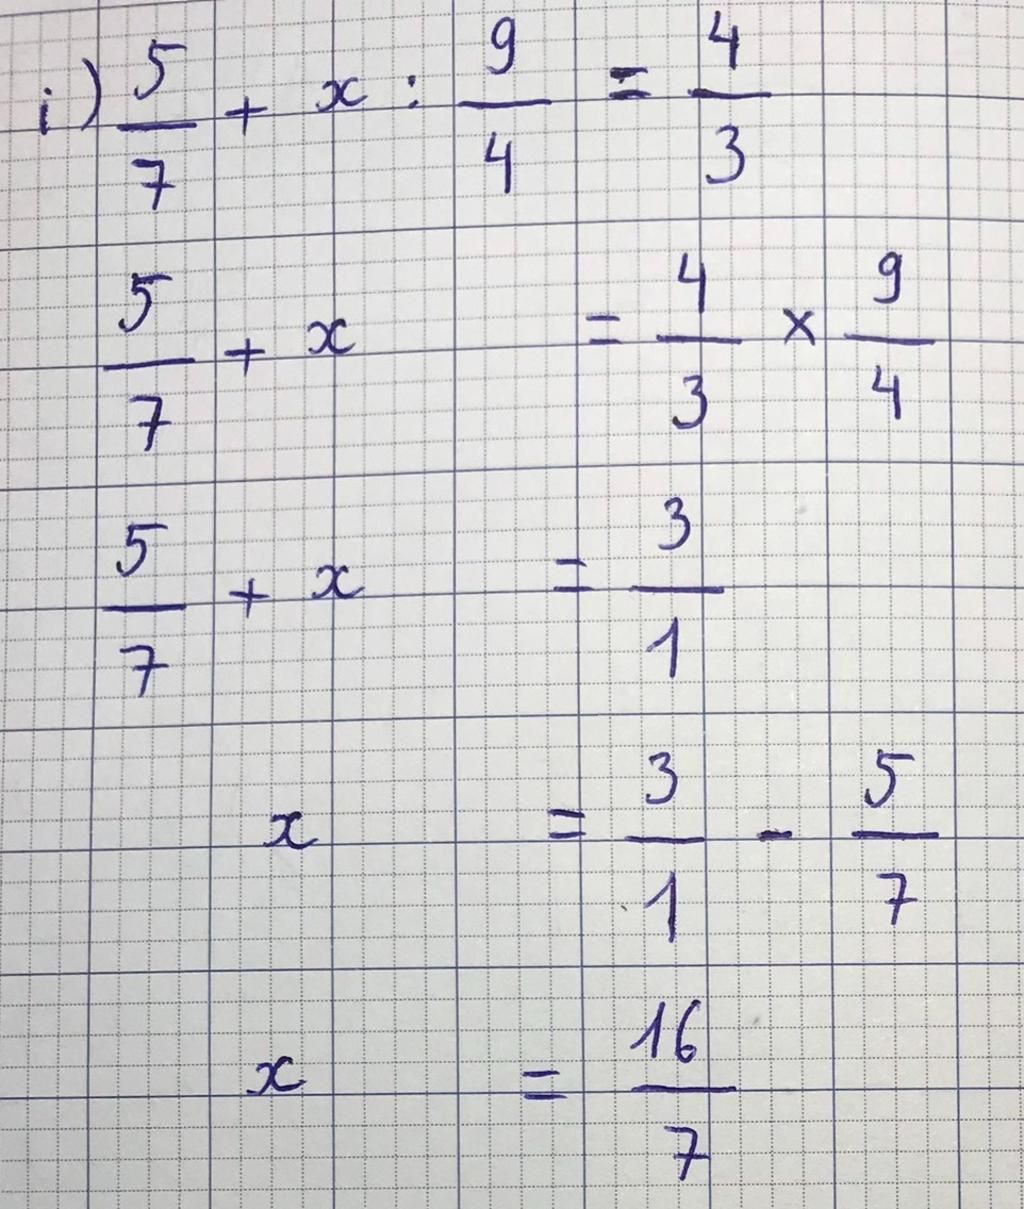 i) 5/7 + x : 9/4 = 4/3
5/7 + x = 4/3 × 9/4
5/7 + x = 3/1
x = 3/1 - 5/7
x = 16/7